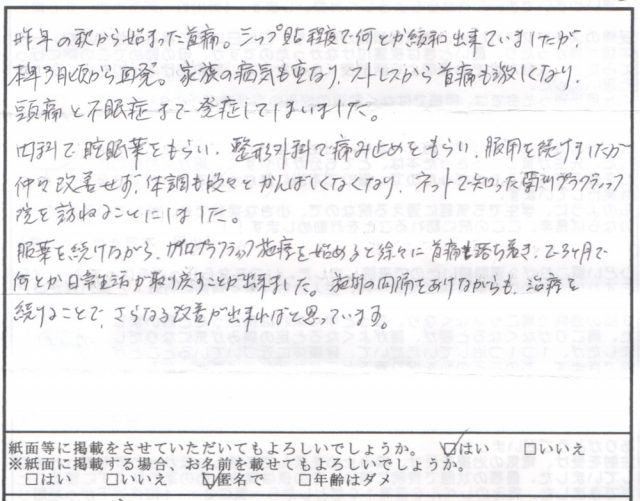 昨年の秋から始まった首痛。シップ貼程度で何とか緩和出来ていましたが、
本年3月頃から再発。家族の病気も重なり、ストレスから首痛も激しくなり、
頭痛と不眠症まで発症してしまいました。
内科で睡眠薬をもらい、整形外科で痛み止めをもらい、服用を続けましたが
仲々改善せず、体調も段々とかんばしくなくなり、ネットで知った カイロプラクティック
院を訪ねることにしました。
服薬を続けながら、カイロプラクティック施療を始めると徐々に首痛も落ち着き、2~3ヶ月で
何とか日常生活が取り戻すことが出来ました。施術の間隔をあけながらも、治療を
続けることで、さらなる改善が出来ればと思っています。
紙面等に掲載をさせていただいてもよろしいでしょうか。 ☑はい □いいえ
※紙面に掲載する場合、お名前を載せてもよろしいでしょうか。
□はい □いいえ ☑匿名で □年齢はダメ